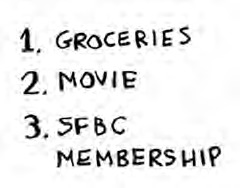 1. GROCERIES
2. MOVIE
3. SFBC
MEMBERSHIP